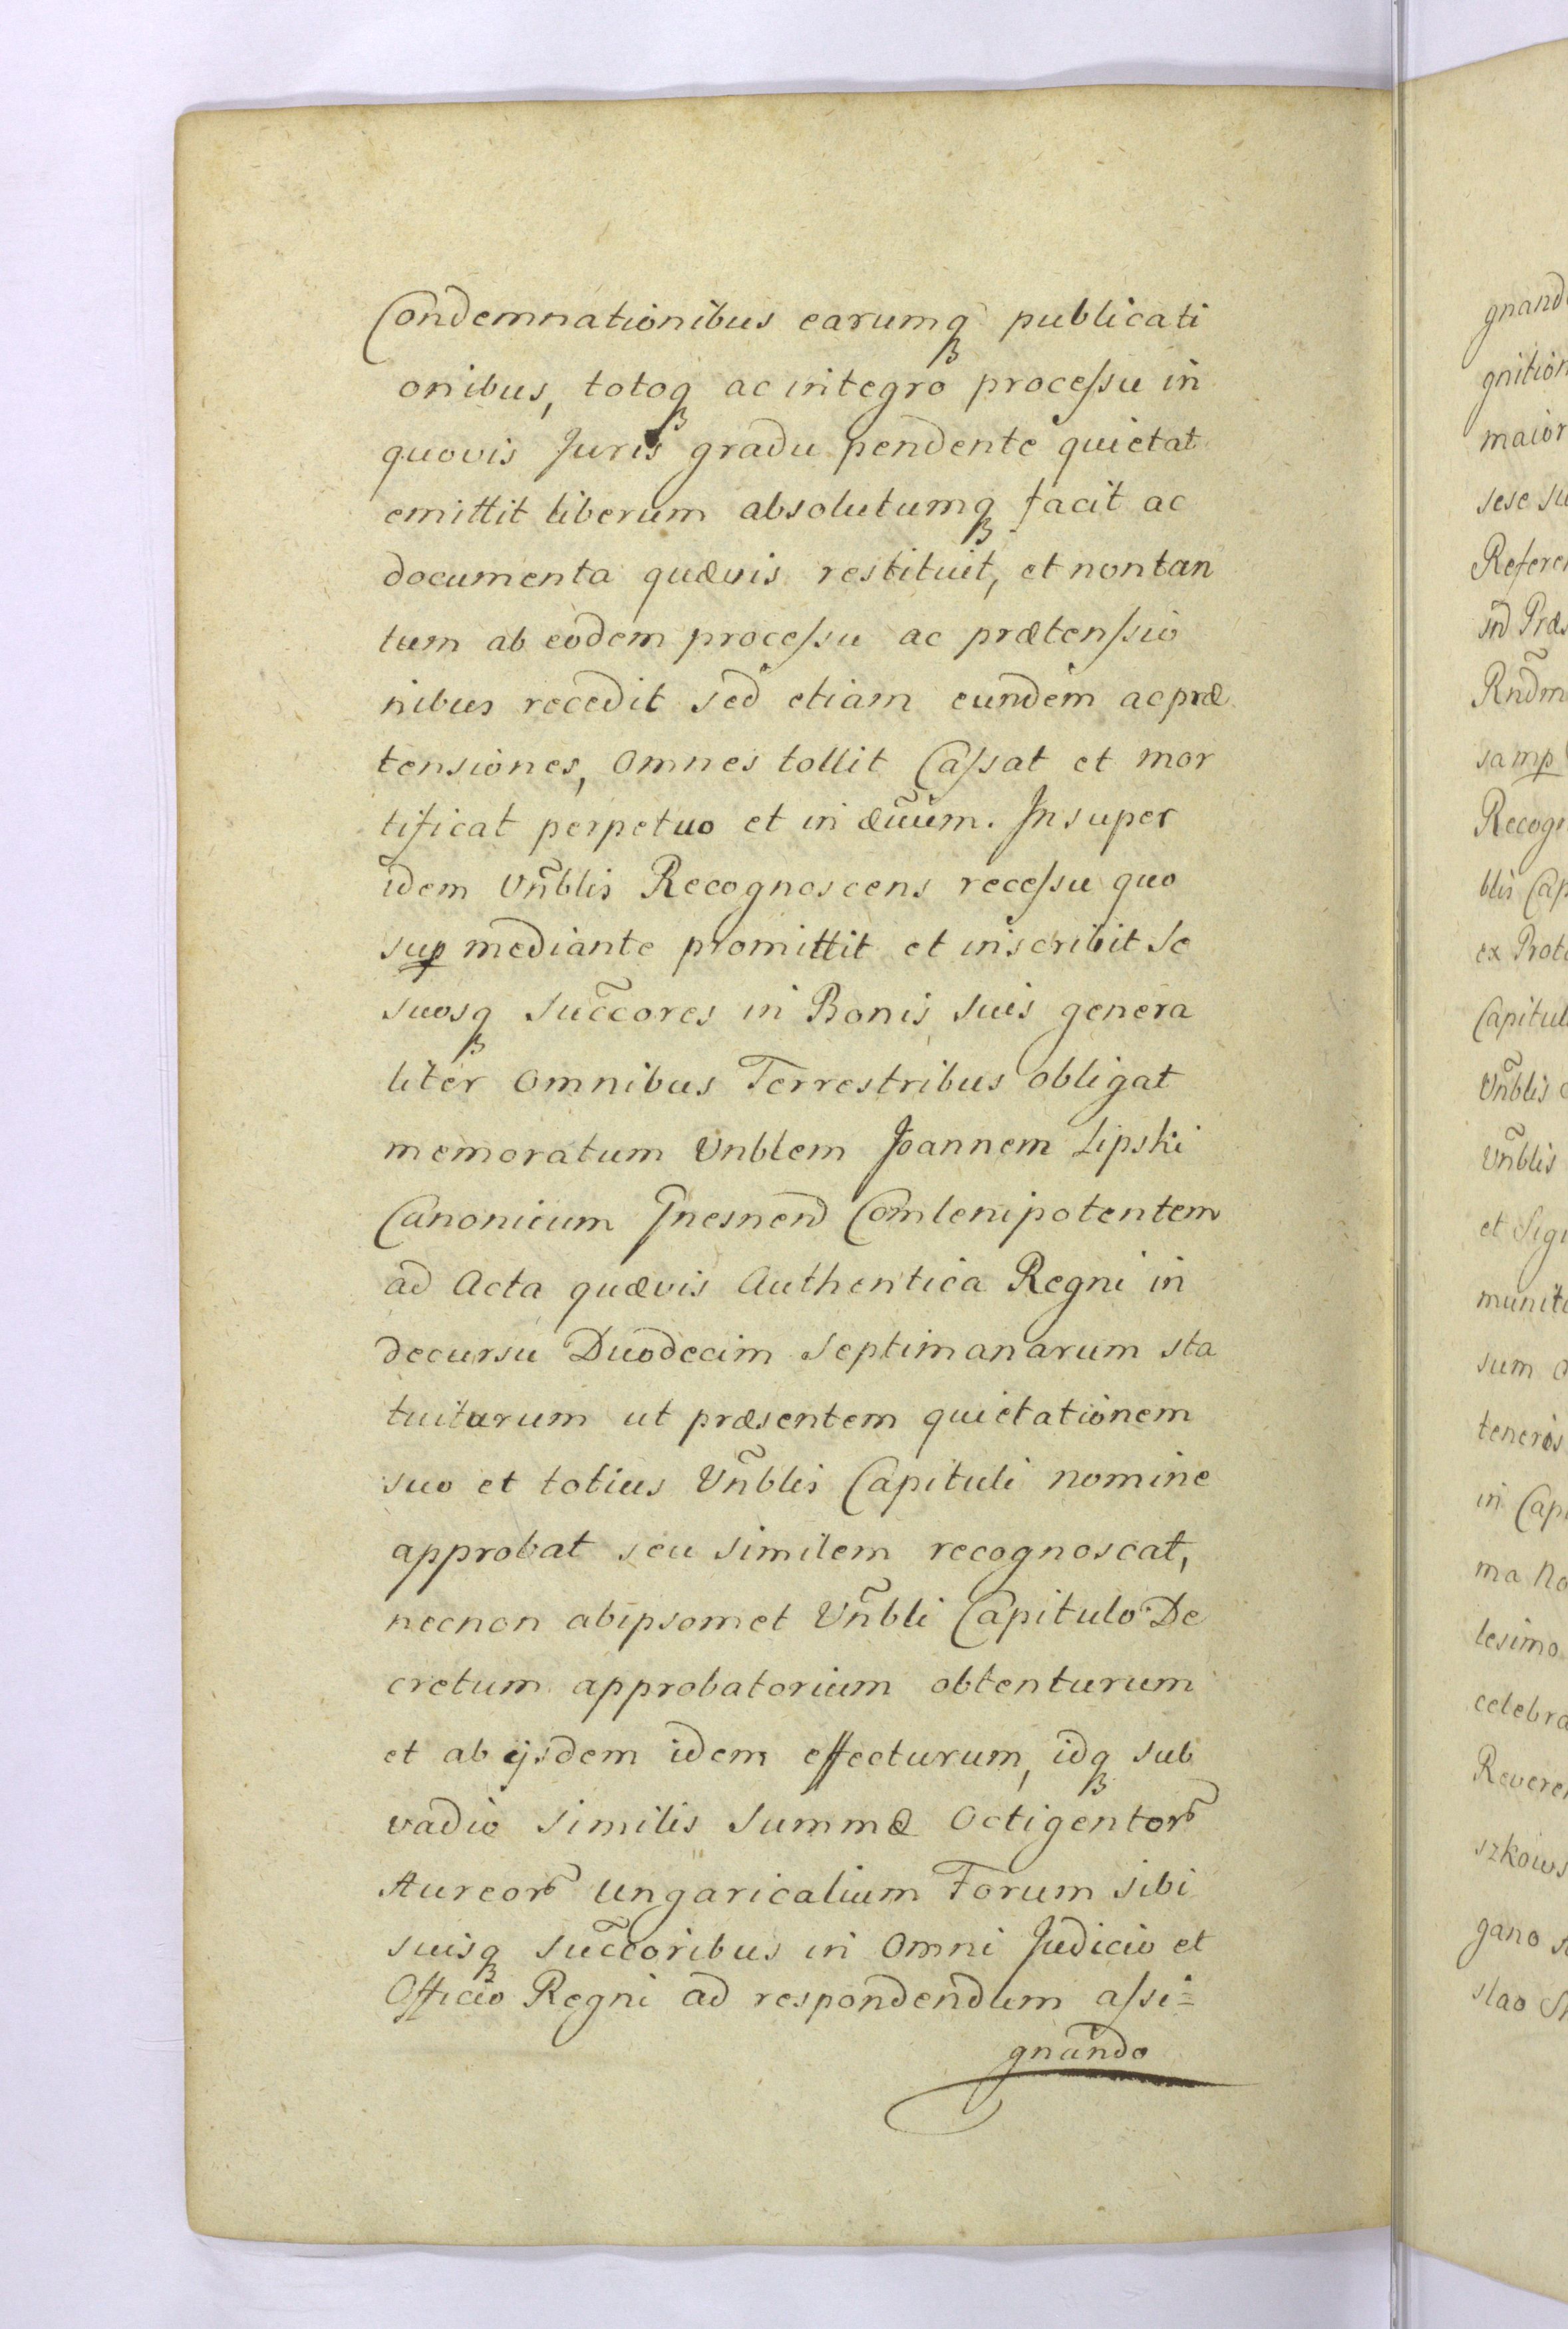 Condemnationibus earumqꝫ publicati
onibus, totoqꝫ ac integro processu in
quovis Juris gradu pendente quietat
emittit liberum absolutumqꝫ facit ac
documenta quævis restituit, et non tan
tum ab eodem processu ac prætenssio
nibus recedit sed etiam eundem ac præ
tensiones, Omnes tollit Cassat et mor
tificat perpetuo et in æuũm. Insuper
idem Vñblis Recognoscens recessu quo
suꝑ mediante promittit et inscribit Se
suosqꝫ Succ̃ores in Bonis suis genera
liter Omnibus Terrestribus obligat
memoratum Vnblem Joannem Lipski
Canonicum Gnesnen̄ Comlenipotentem
ad Acta quævis Authentica Regni in
decursu Duodecim Septimanarum sta
tuiturum ut præsentem quietationem
suo et totius Vñblis Capituli nomine
approbat seu Similem recognoscat,
necnon ab ipsomet Vñbli Capitulo De
cretum approbatorium obtenturum
et ab ijsdem idem effecturum, idqꝫ sub
vadio similis Summæ Octigentor̃
Aureor̃ Ungaricalium Forum sibi
suisqꝫ Succ̃oribus in Omni Judicio et
Officio Regni ad respondendum assi=
gnando
gnand
gnition
maior
sese su
Refere
Ind Præs
Rñdm
samꝑ
Recog
blis Cap
ex Prot
Capitul
Vñblis
Vñblis
et Sigi
munit
sum
teneris
in Cap
ma No
lesimo
celebra
Revere
szkows
gano s
slao S